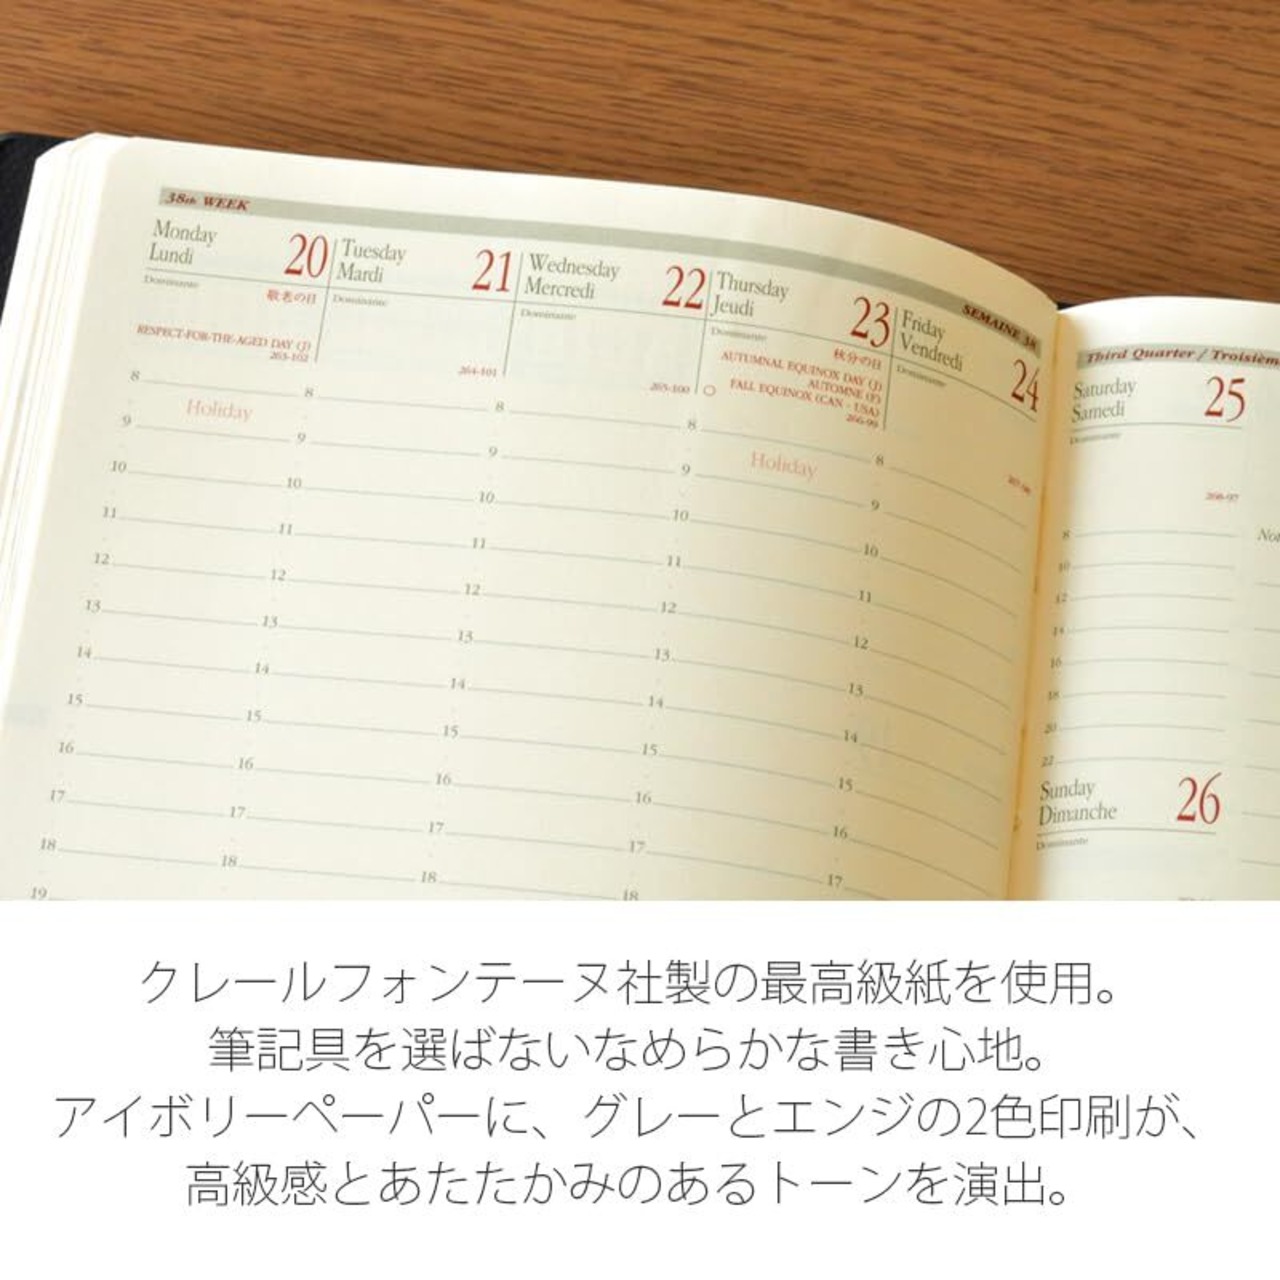 38th WEEK
SEMAINE 38
Monday
Lundi
20
Dominante
敬老の日
RESPECT-FOR-THE-AGED DAY (J)
263-102
Tuesday
Mardi
21
Dominante
264-101
Wednesday
Mercredi
22
Dominante
265-100
Thursday
Jeudi
23
Dominante
秋分の日
AUTUMNAL EQUINOX DAY (J)
AUTOMNE (F)
FALL EQUINOX (CAN - USA)
266-99
Friday
Vendredi
24
Dominante
8
Holiday
9
10
11
12
13
14
15
16
17
18
19
8
9
10
11
12
13
14
15
16
17
18
8
9
10
11
12
13
14
15
16
17
18
8
9
Holiday
10
11
12
13
14
15
16
17
18
8
9
10
11
12
13
14
15
16
17
Third Quarter / Troisièm
Saturday
Samedi
25
Dominante
268-97
8
10
12
14
16
18
20
22
Not
Sunday
Dimanche
26
Dominante
クレールフォンテーヌ社製の最高級紙を使用。
筆記具を選ばないなめらかな書き心地。
アイボリーペーパーに、グレーとエンジの2色印刷が、
高級感とあたたかみのあるトーンを演出。